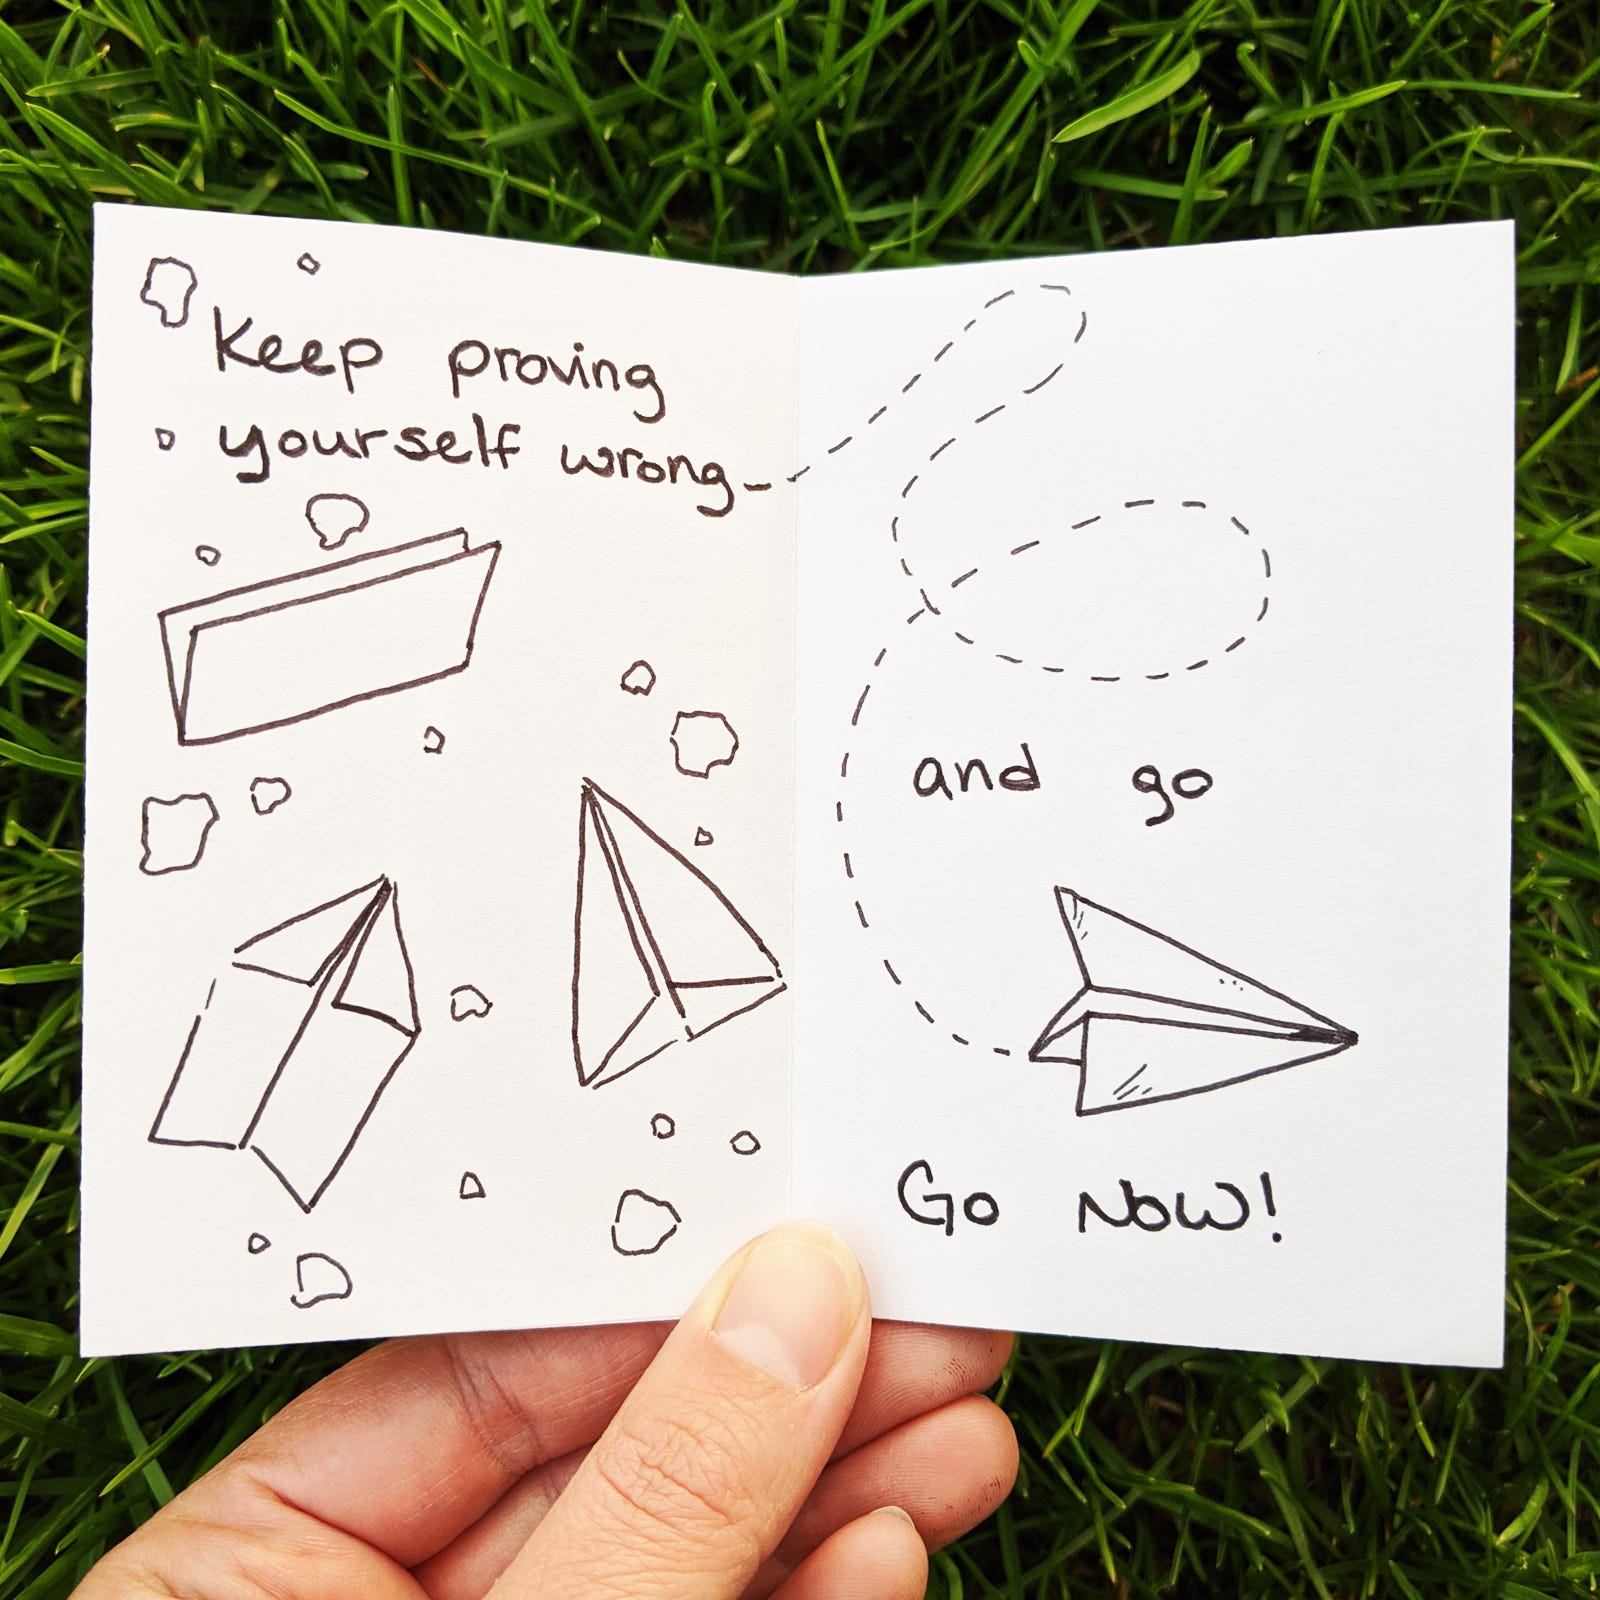 Keep proving
yourself wrong
and go
Go Now!